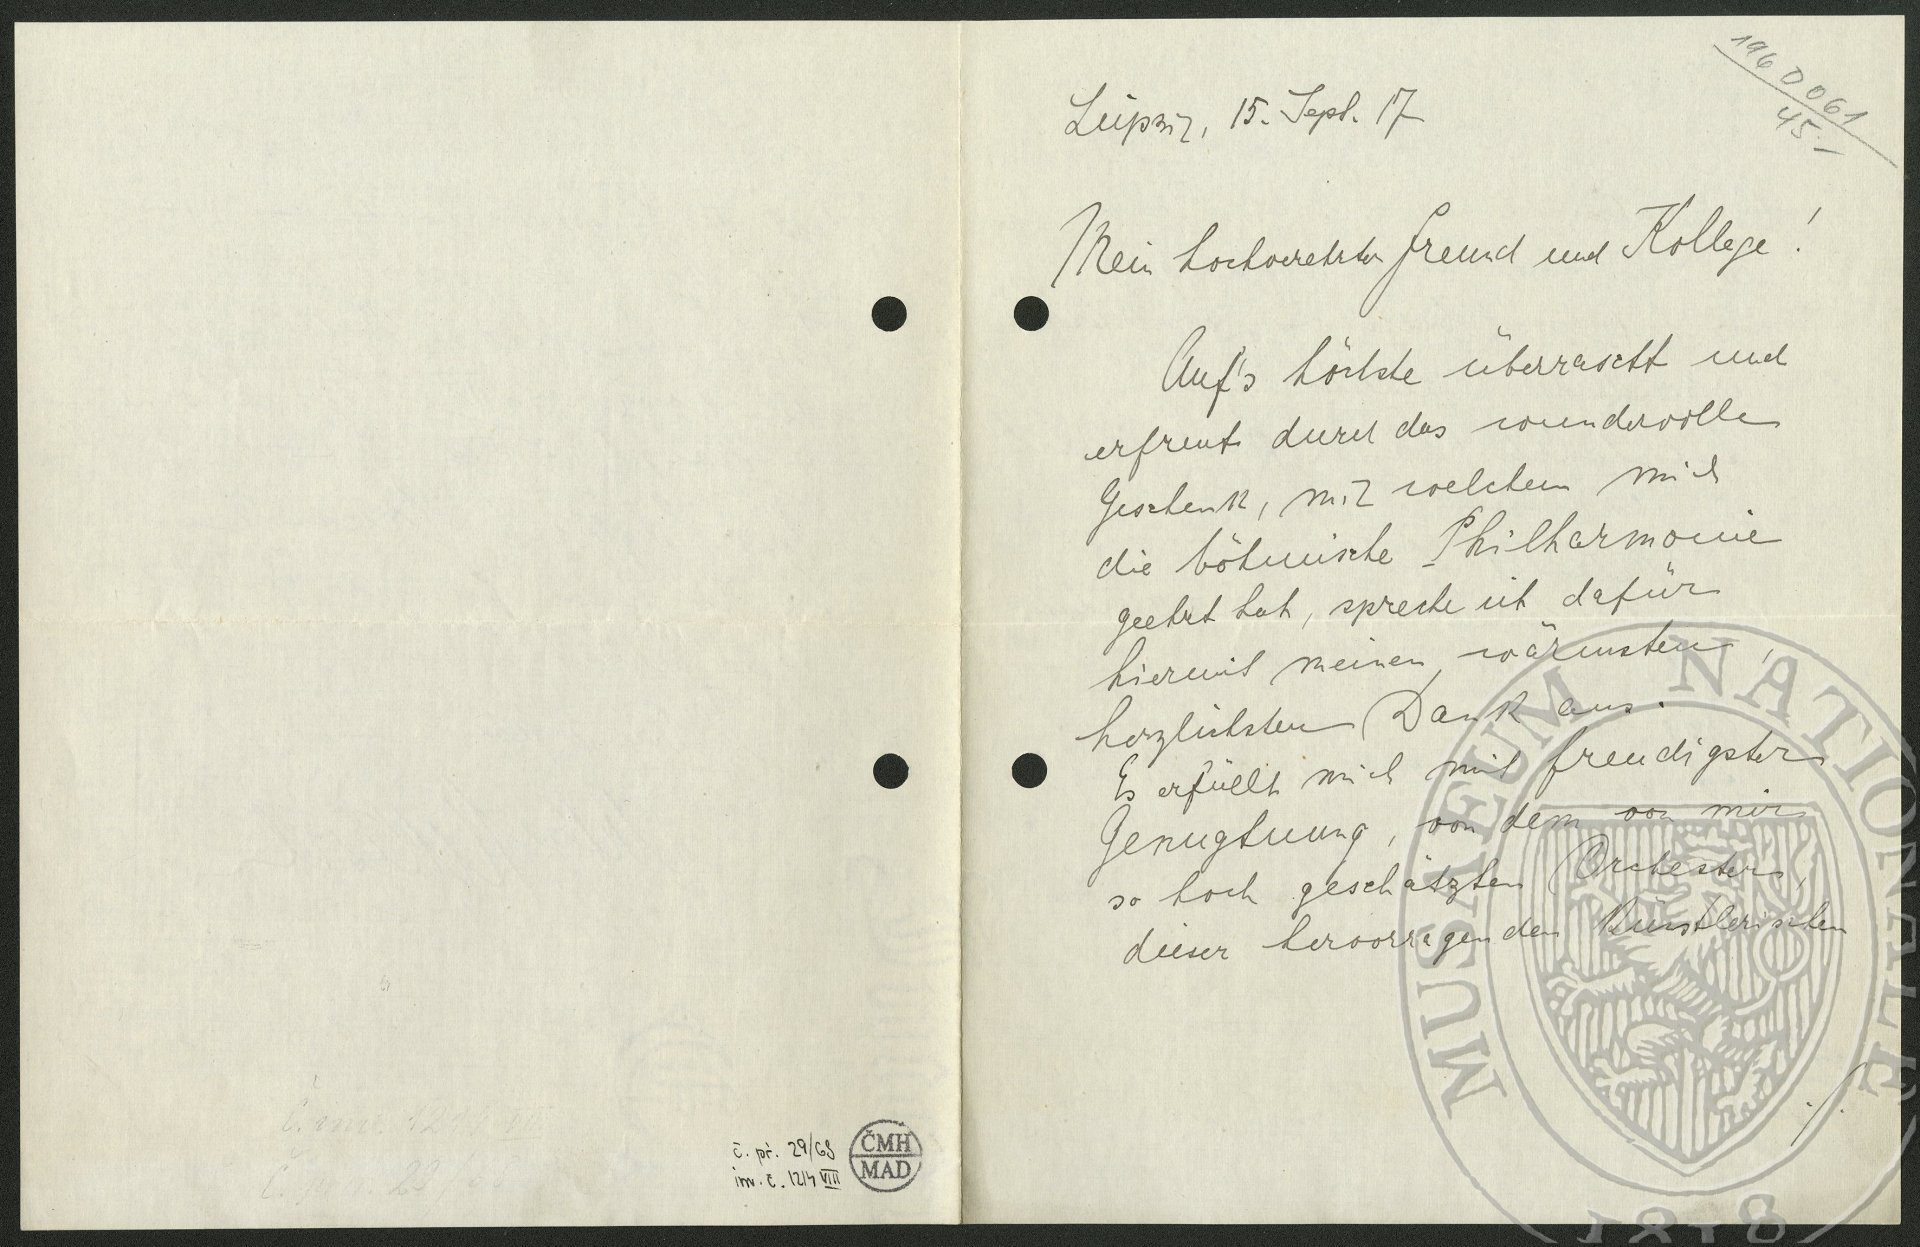 č. př. 29/68
inv. č. 1214 VIII
ČMH
MAD
196 D 061
45.-
Leipzig, 15. Sept. 17
Mein hochverehrter Freund und Kollege!
Auf's höchste überrascht und
erfreut durch das wundervolle
Geschenk, mit welchem mich
die böhmische Philharmonie
geehrt hat, spreche ich dafür
hiermit meinen wärmsten,
herzlichsten Dank aus.
Es erfüllt mich mit freudigster
Genugtuung, von dem von mir
so hoch geschätzten Orchester,
dieser hervorragenden künstlerischen
MUSAEUM NATIONALE
1818